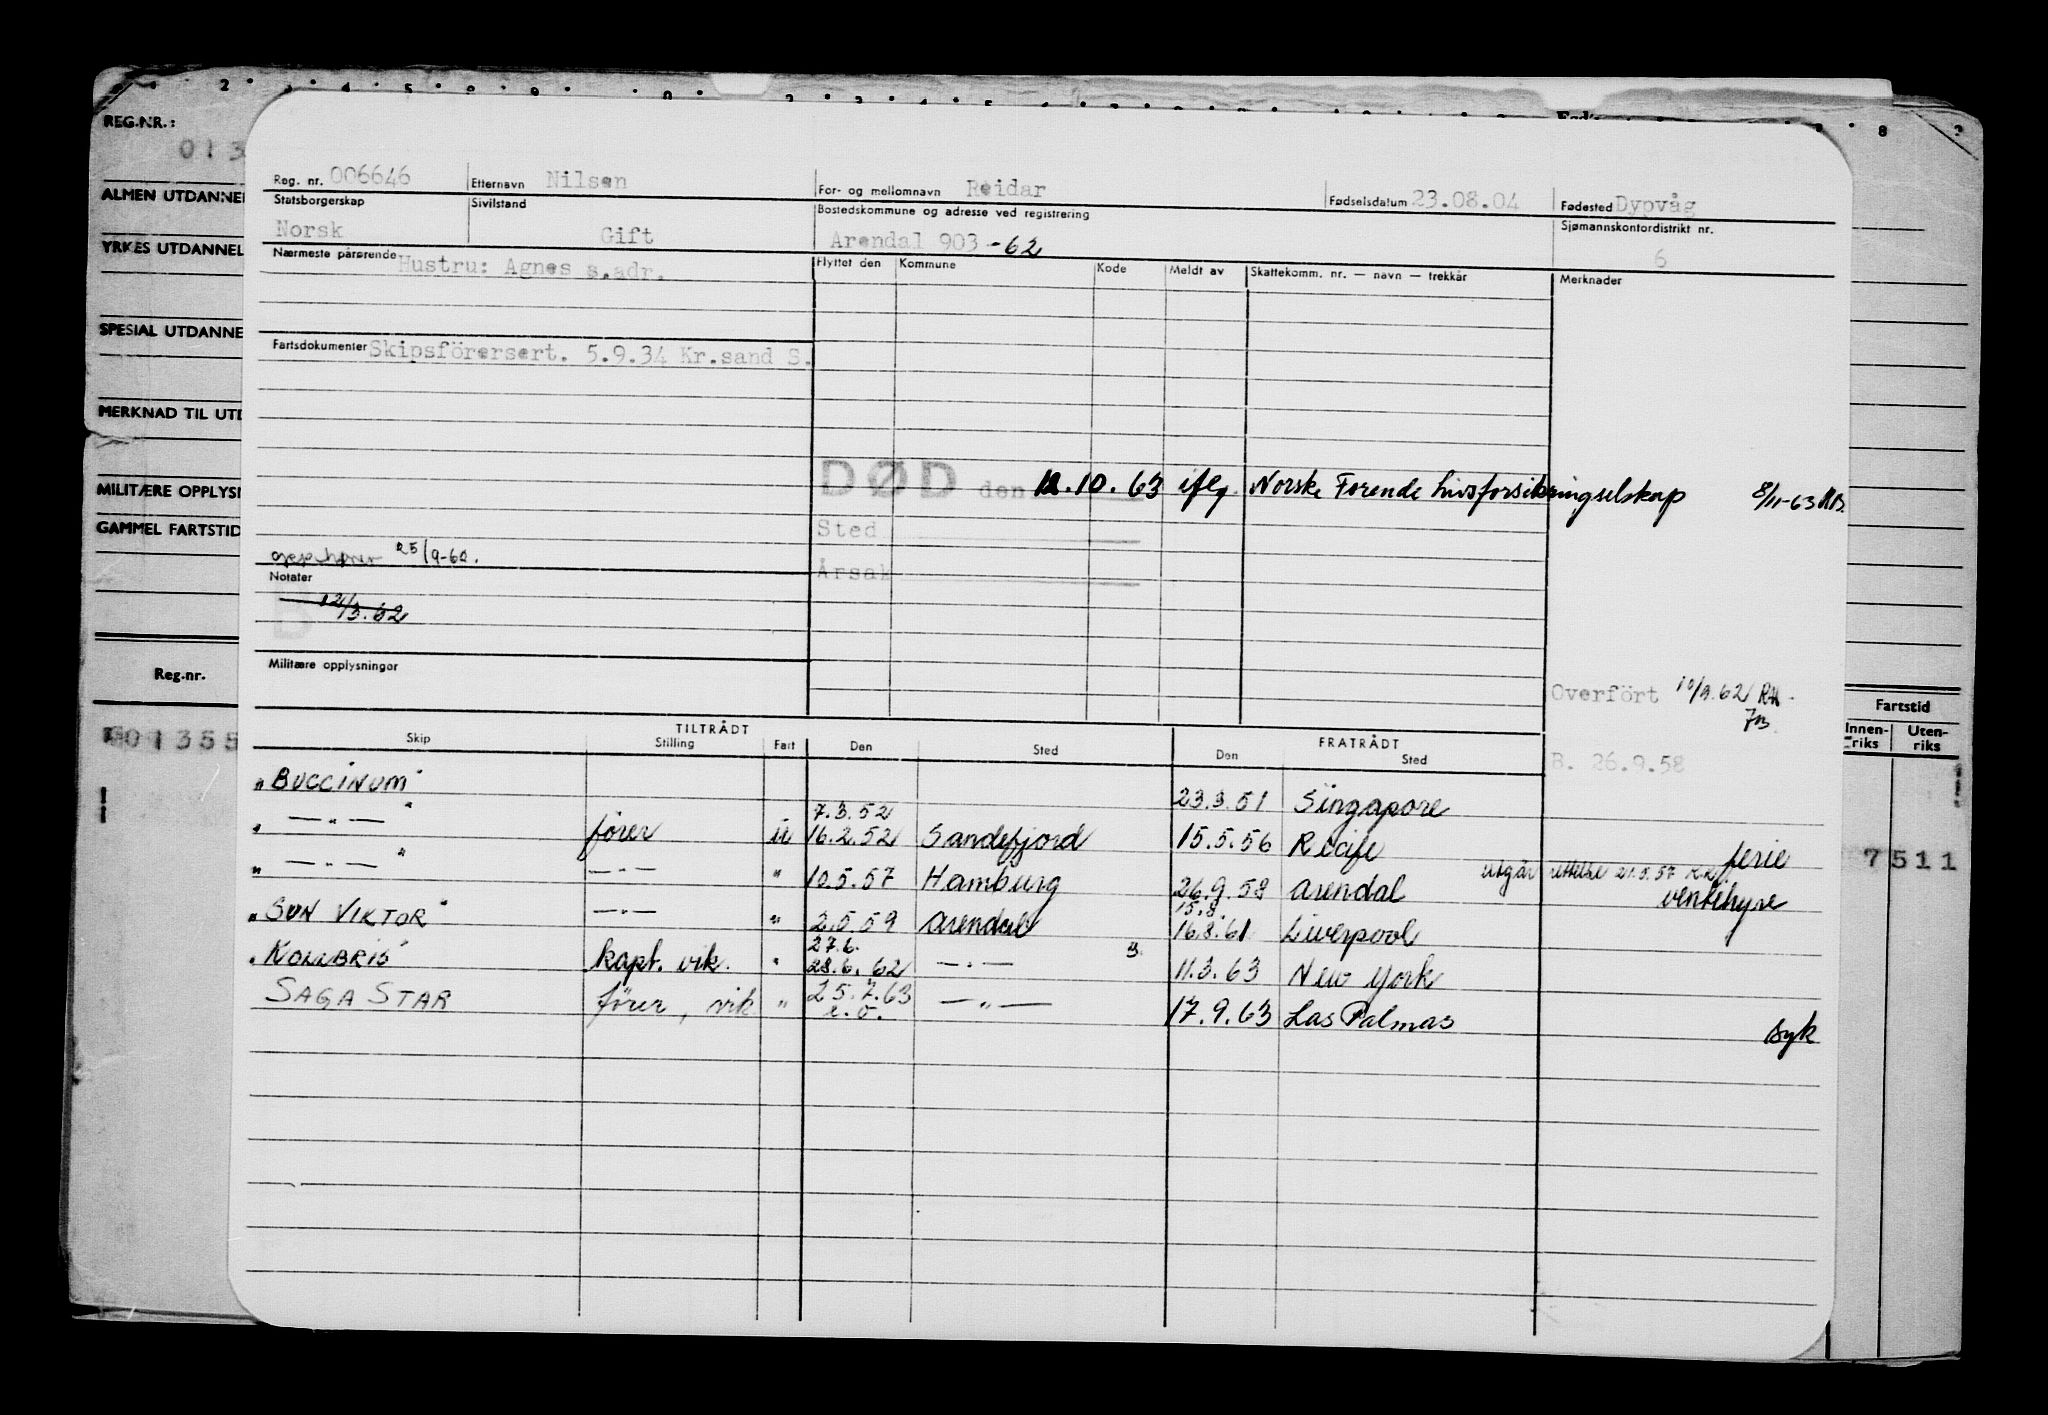 REG.NR.:
013
ALMEN UTDANNE
YRKES UTDANNEL
SPESIAL UTDANNE
MERKNAD TIL UTD
MILITÆRE OPPLYSN
GAMMEL FARTSTID
Reg.nr.
Reg. nr. 006646 Etternavn Nilsen For- og mellomnavn Reidar Fødselsdatum 23.08.04 Fødested Dypvåg
Statsborgerskap Sivilstand Bostedskommune og adresse ved registrering Sjømannskontordistrikt nr.
Norsk Gift Arendal 903-62 6
Nærmeste pårørende Hustru: Agnes s.adr. Flyttet den Kommune Kode Meldt av Skattekomm. nr. — navn — trekkår Merknader
Fartsdokumenter Skipsförersert. 5.9.34 Kr.sand S.
DØD den 12.10.63 iflg. Norske Forende livsforsikringselskap 8/11-63
Sted
Årsak
25/9-60.
Notater
12/3.62
Militære opplysninger
Overfört 10/9.62 RH.
TILTRÅDT FRATRÅDT
Skip Stilling Fart Den Sted Den Sted
B. 26.9.58
Fartstid
Innen-riks Uten-riks
"BUCCINUM" 23.3.51 Singapore
7.3.52
" —"— " fører u 16.2.52 Sandefjord 15.5.56 Recife ferie
utgår 21.5.57
" —"— " —"— " 10.5.57 Hamburg 26.9.58 Arendal ventehyre
15.8.
"SUN VIKTOR" —"— " 2.5.59 Arendal 16.8.61 Liverpool
27.6.
"KOLLBRIS" kapt. vik. " 28.6.62 —"— 11.3.63 New York
SAGA STAR fører, vik " 25.7.63 —"— 17.9.63 Las Palmas syk
e.o.
7511